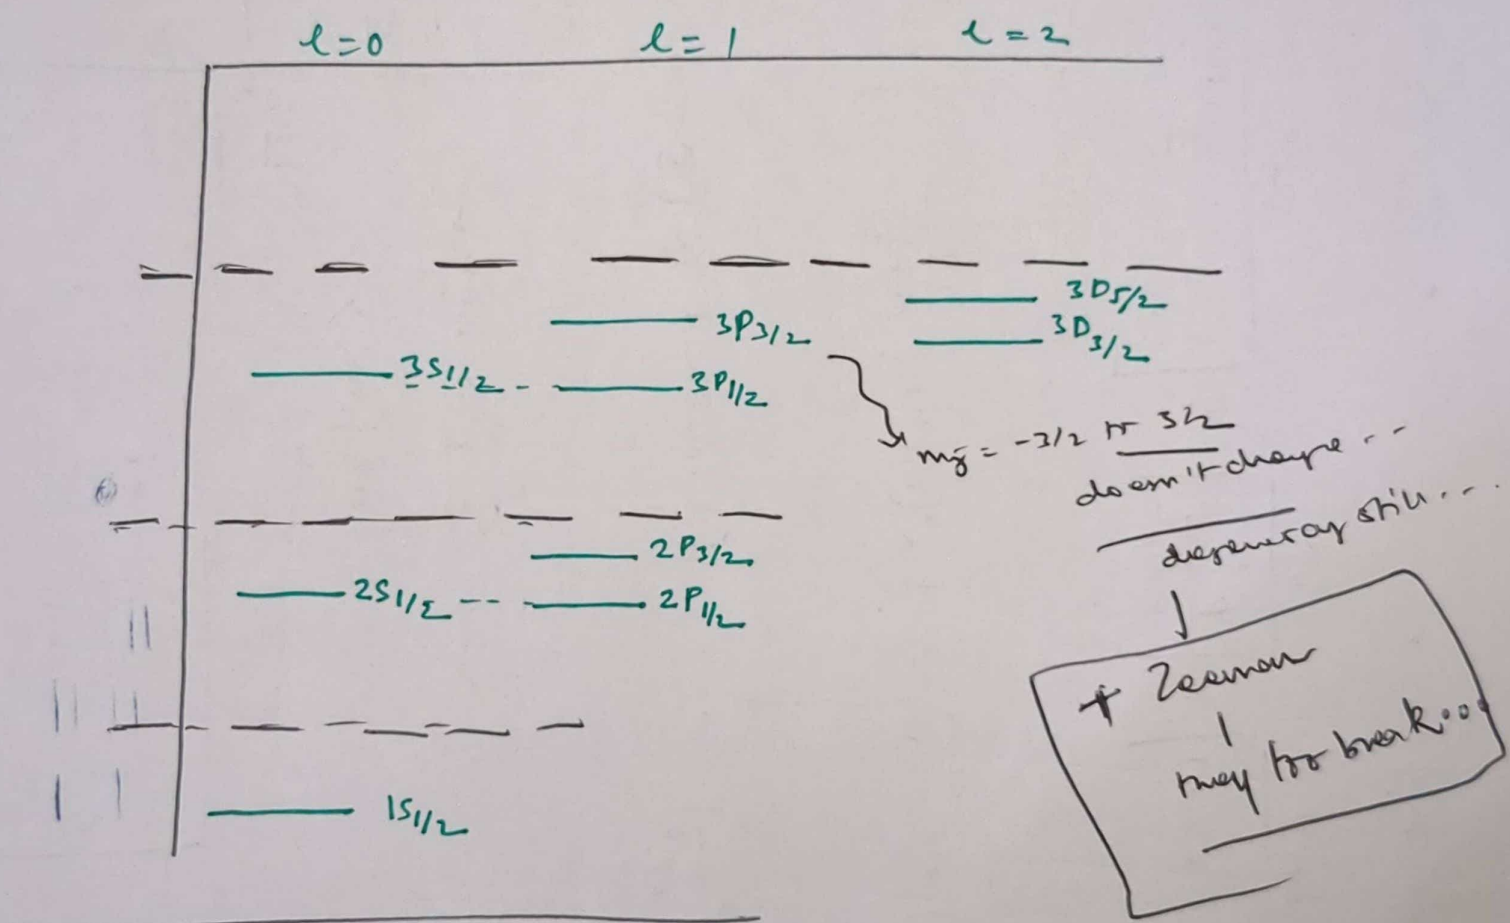 l=0 l=1 l=2
3D5/2
3P3/2 3D3/2
3S1/2 3P1/2
mj = -3/2 to 3/2
doesn't change...
degeneracy still....
2P3/2
2S1/2 2P1/2
+ Zeeman
may break...
1S1/2